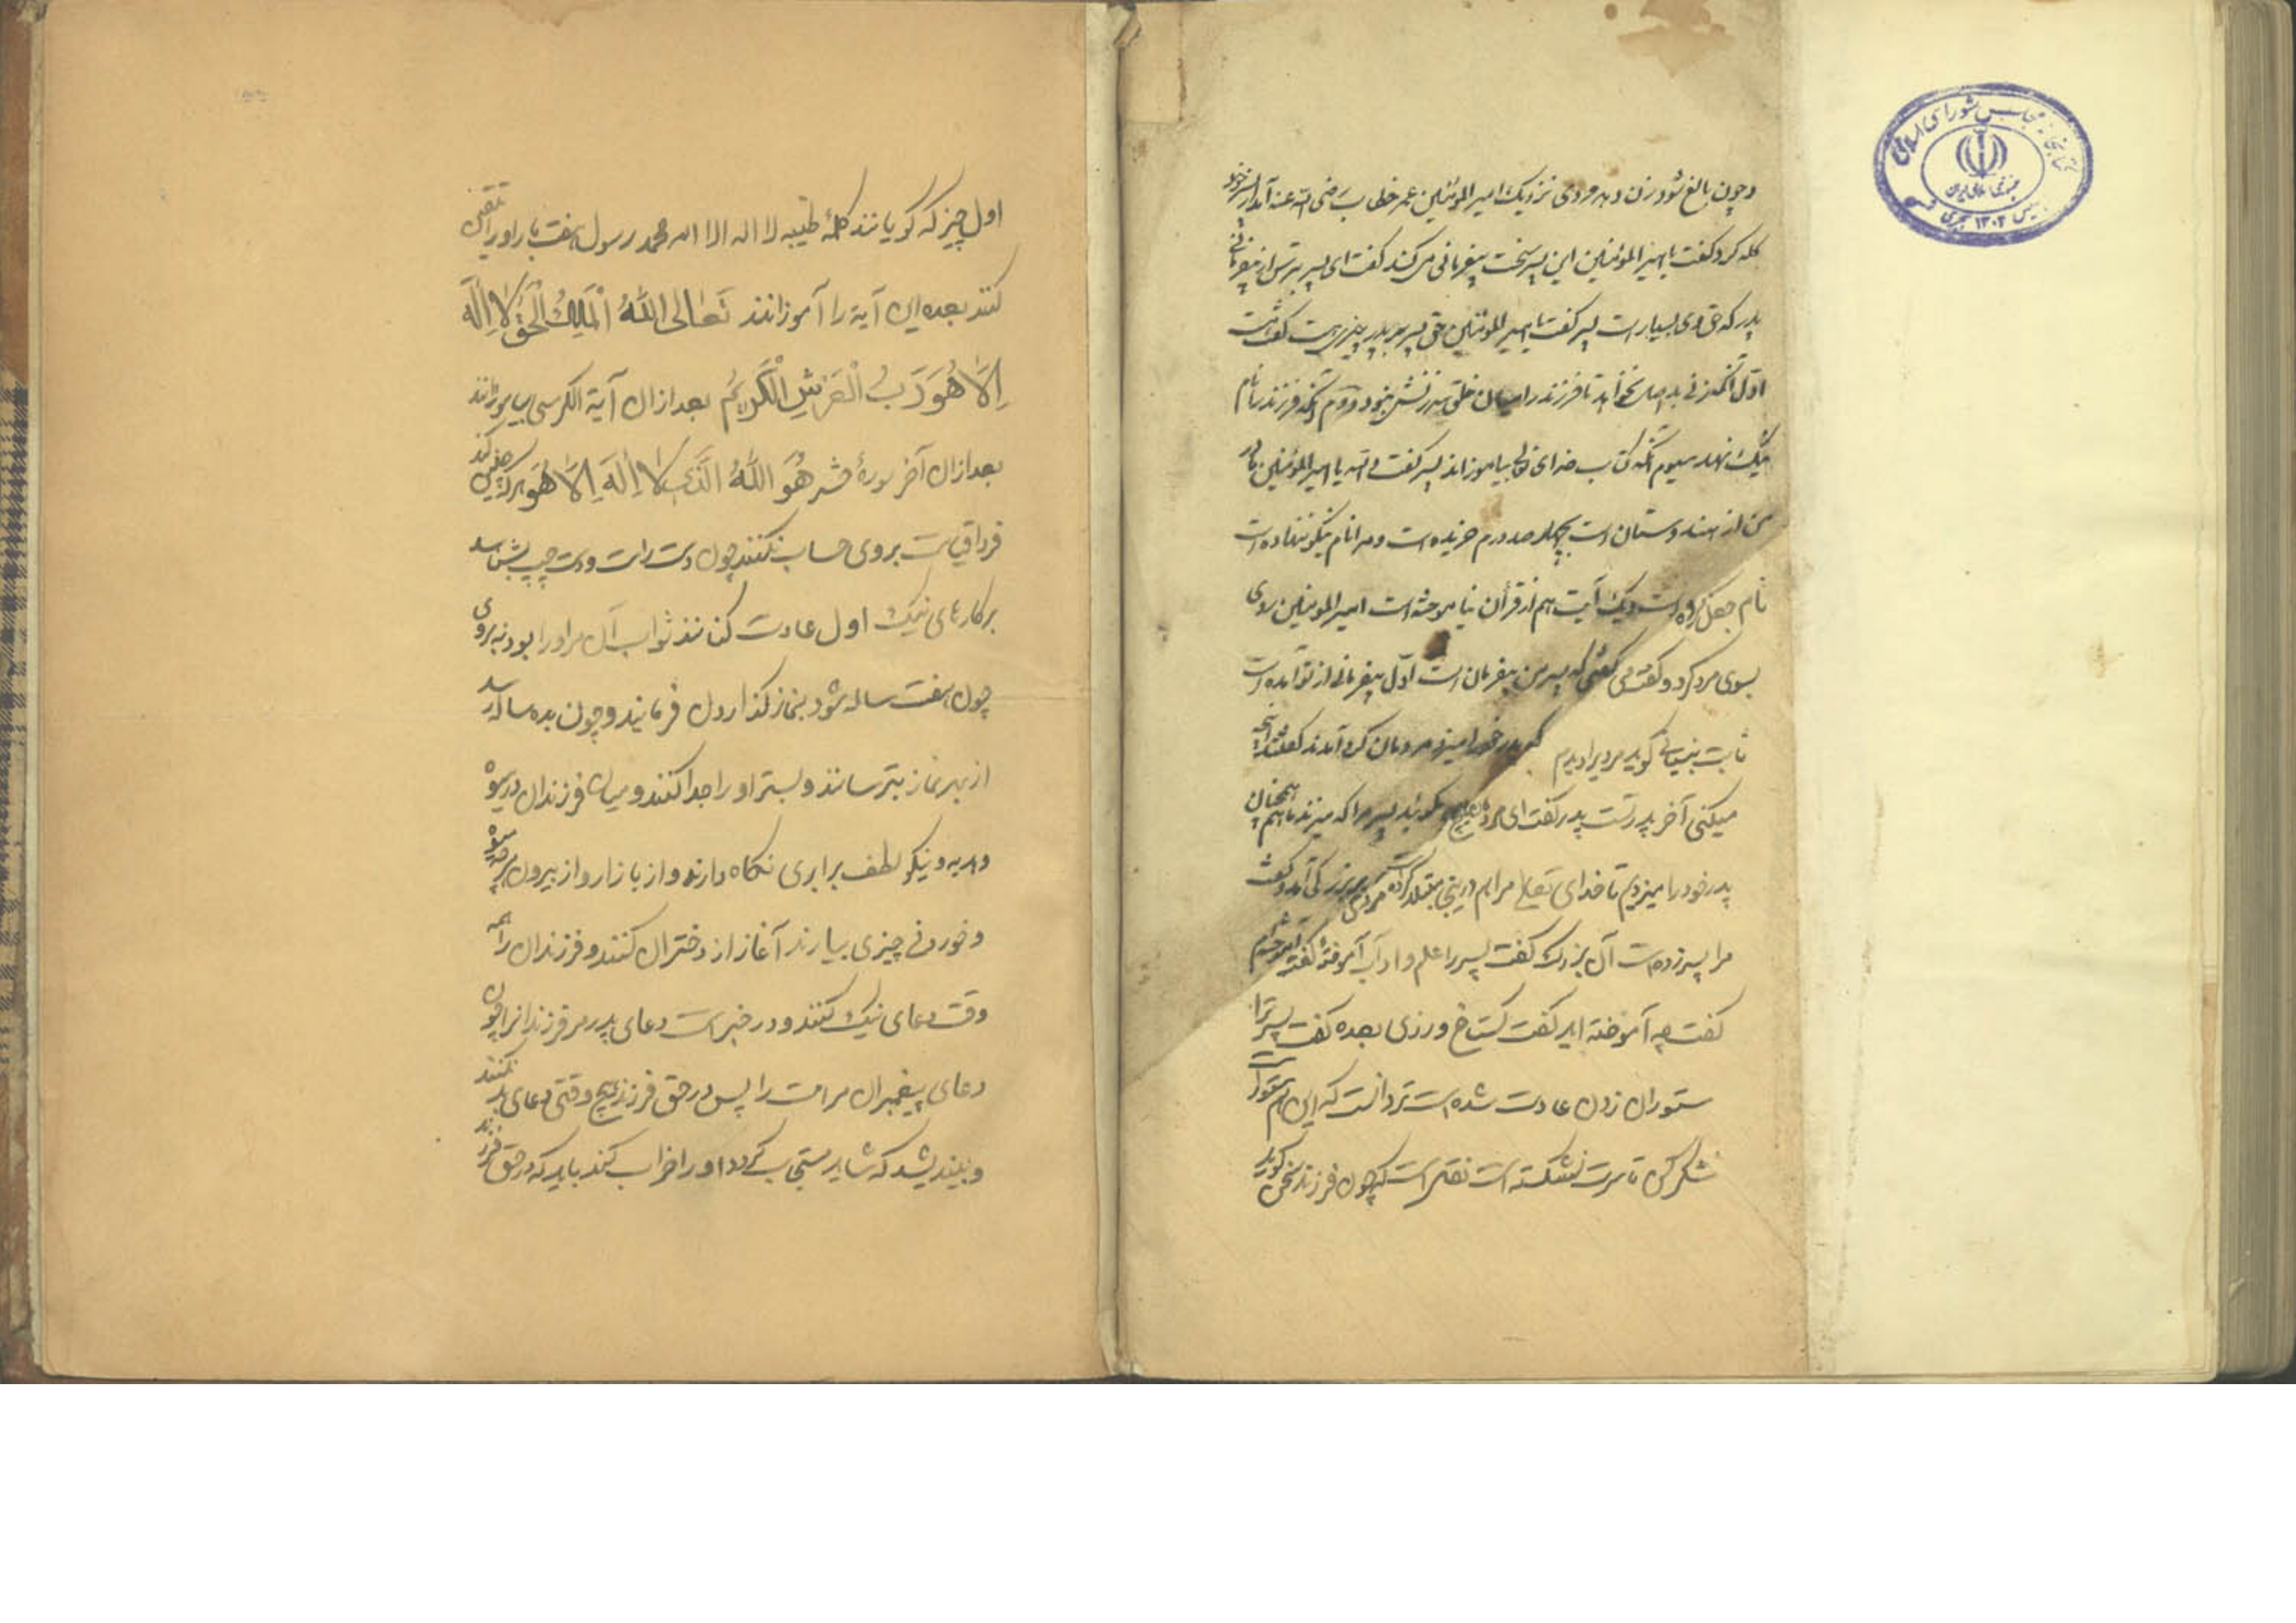 وچون بالغ شود زن دهد مردی نزدیک امیر المؤمنین عمر خطاب رضی الله عنه آمد از پسر خود
گله کرد گفت یا امیر المؤمنین این پسر سخت بیفرمانی میکند گفت ای پسر بترس از بیفرمانی
پدر که حق وی بسیارست پسر گفت یا امیر المؤمنین حق پسر بر پدر چیزی هست گفت هست
اول آنکه زنی بد اصل نخواهد تا فرزند را میان خلق سرزنش نبود دوم آنکه فرزند را نام
نیک نهد سیوم آنکه کتاب خدای تعالی بیاموزاند پسر گفت والله یا امیر المؤمنین مادر
من از هندوستان است بچهار صد درم خریده است و مرا نام نیکو ننهاده است
نام جعل کرده است و یک آیت هم از قرآن نیاموخته است امیر المومنین روی
بسوی مرد کرد و گفت می گفتی که پسر من بیفرمان است اول بیفرمانی از تو آمده است
ثابت بنیانی گوید مردیرا دیدم که پدر خود را میزد مردمان گرد آمدند گفتند
میکنی آخر پدر تست پدر گفت ای مردمان هیچ مگوئید پسر مرا که میزند ما هم همچنان
پدر خود را میزدم تا خدای تعالی مرا هم درینجا مبتلا کرد مردی بر بزرگی آمد و گفت
مرا پسر زده است آن بزرگ گفت پسر را علم و ادب آموختهٔ گفت آموختم
گفت چه آموخته اید گفت کشاورزی بعده گفت پسر ترا
ستوران زدن عادت شده است ترا دانست که این هم ستور است
شکر کن تا سرت نشکسته است نقلست که چون فرزند سخن گوید
اول چیز که گویانند کلمهٔ طیبه لا اله الا الله محمد رسول الله هفت بار او را تلقین
کنند بعده این آیة را آموزانند تَعَالَی اللّٰهُ الْمَلِكُ الْحَقُّ لَا اِلٰهَ
اِلَّا هُوَ رَبُّ الْعَرْشِ الْكَرِيْمُ بعد ازان آیة الکرسی بیاموزانند
بعد ازان آخر سورهٔ حشر هُوَ اللّٰهُ الَّذِي لَا اِلٰهَ اِلَّا هُوَ هر که چنین کند
فردا قیامت بروی حساب نکنند چون دست راست و دست چپ بشناسد
بر کارهای نیک اول عادت کنانند ثواب آن مر او را بود نه بروی
چون هفت ساله شود بنماز گذاردن فرمایند و چون بده ساله رسد
از بهر نماز بترسانند و بستر او را جدا کنند و میان فرزندان در میوه
و هدیه و نیکو لطف برابری نگاه دارند و از بازار و از بیرون هر چه میوه
و خوردنی چیزی بیارند آغاز از دختران کنند و فرزندان را همه
وقت دعای نیک کنند و در خبر است دعای پدر مر فرزندانرا چون
دعای پیغمبران مر امت را پس در حق فرزند هیچ وقتی دعای بد نکنند
و بیندیشد که شاید مستجاب گردد او را خراب کند باید که در حق فرزند
کتابخانه مجلس شورای اسلامی
جمهوری اسلامی ایران
تأسیس ۱۳۰۲ هجری شمسی